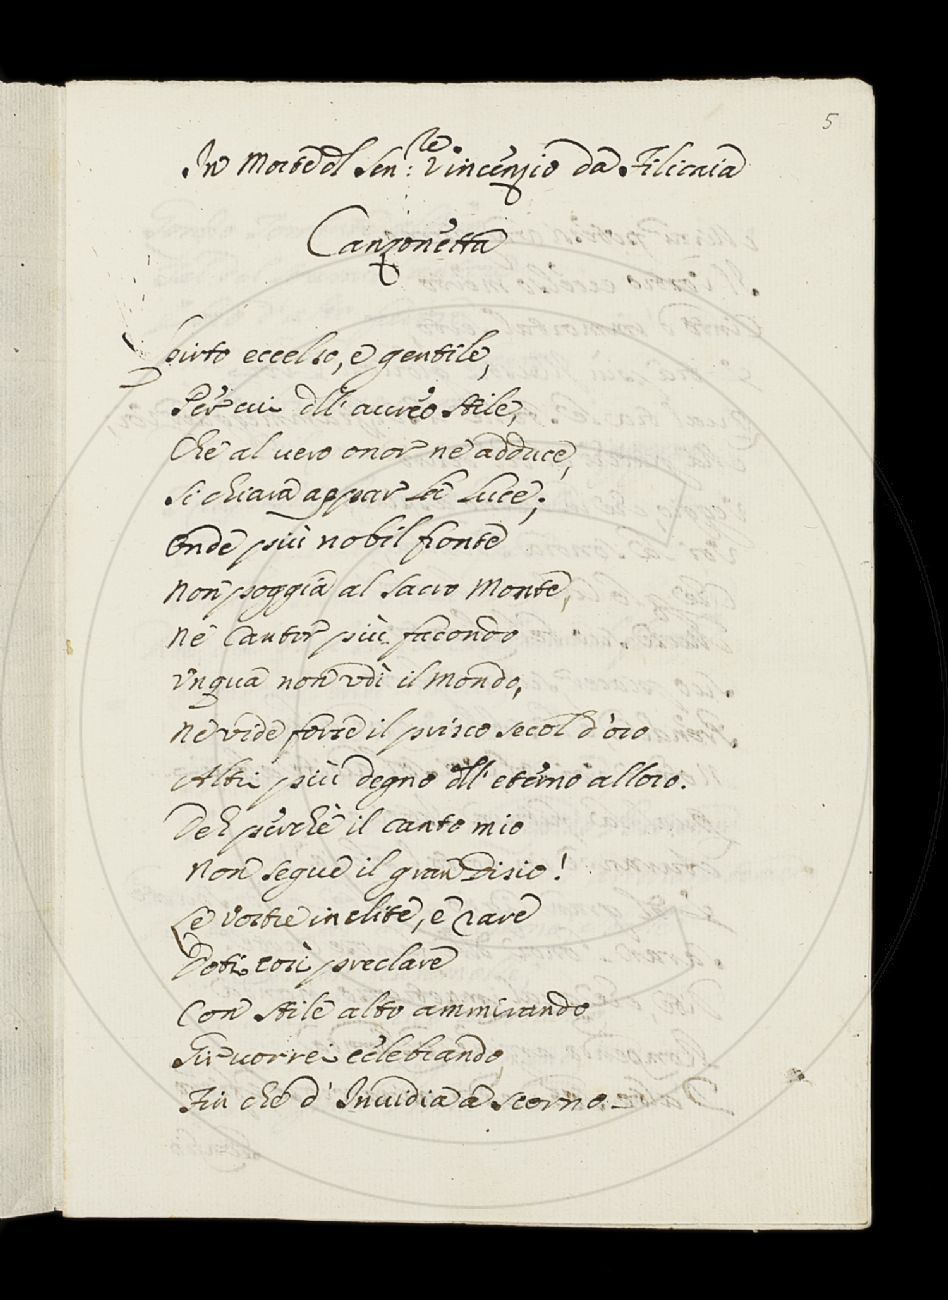 5
In Morte dl Sen:re Vincenzio da Filicaia
Canzonetta
Spirto eccelso, e gentile,
Per cui dll' aureo stile,
Che al vero onor ne adduce,
Si chiara appar la luce;
Onde più nobil fronte
Non poggia al sacro Monte,
Ne Cantor più facondo
Vnqua non vdì il Mondo,
Ne vide forse il prisco secol d'oro
Altri più degno dll' eterno alloro.
Deh perchè il canto mio
Non segue il gran Disio!
Le vostre inclite, e rare
Doti così preclare
Con stile alto ammirando
Gir vorrei celebrando,
Fin che d' Invidia a scorno